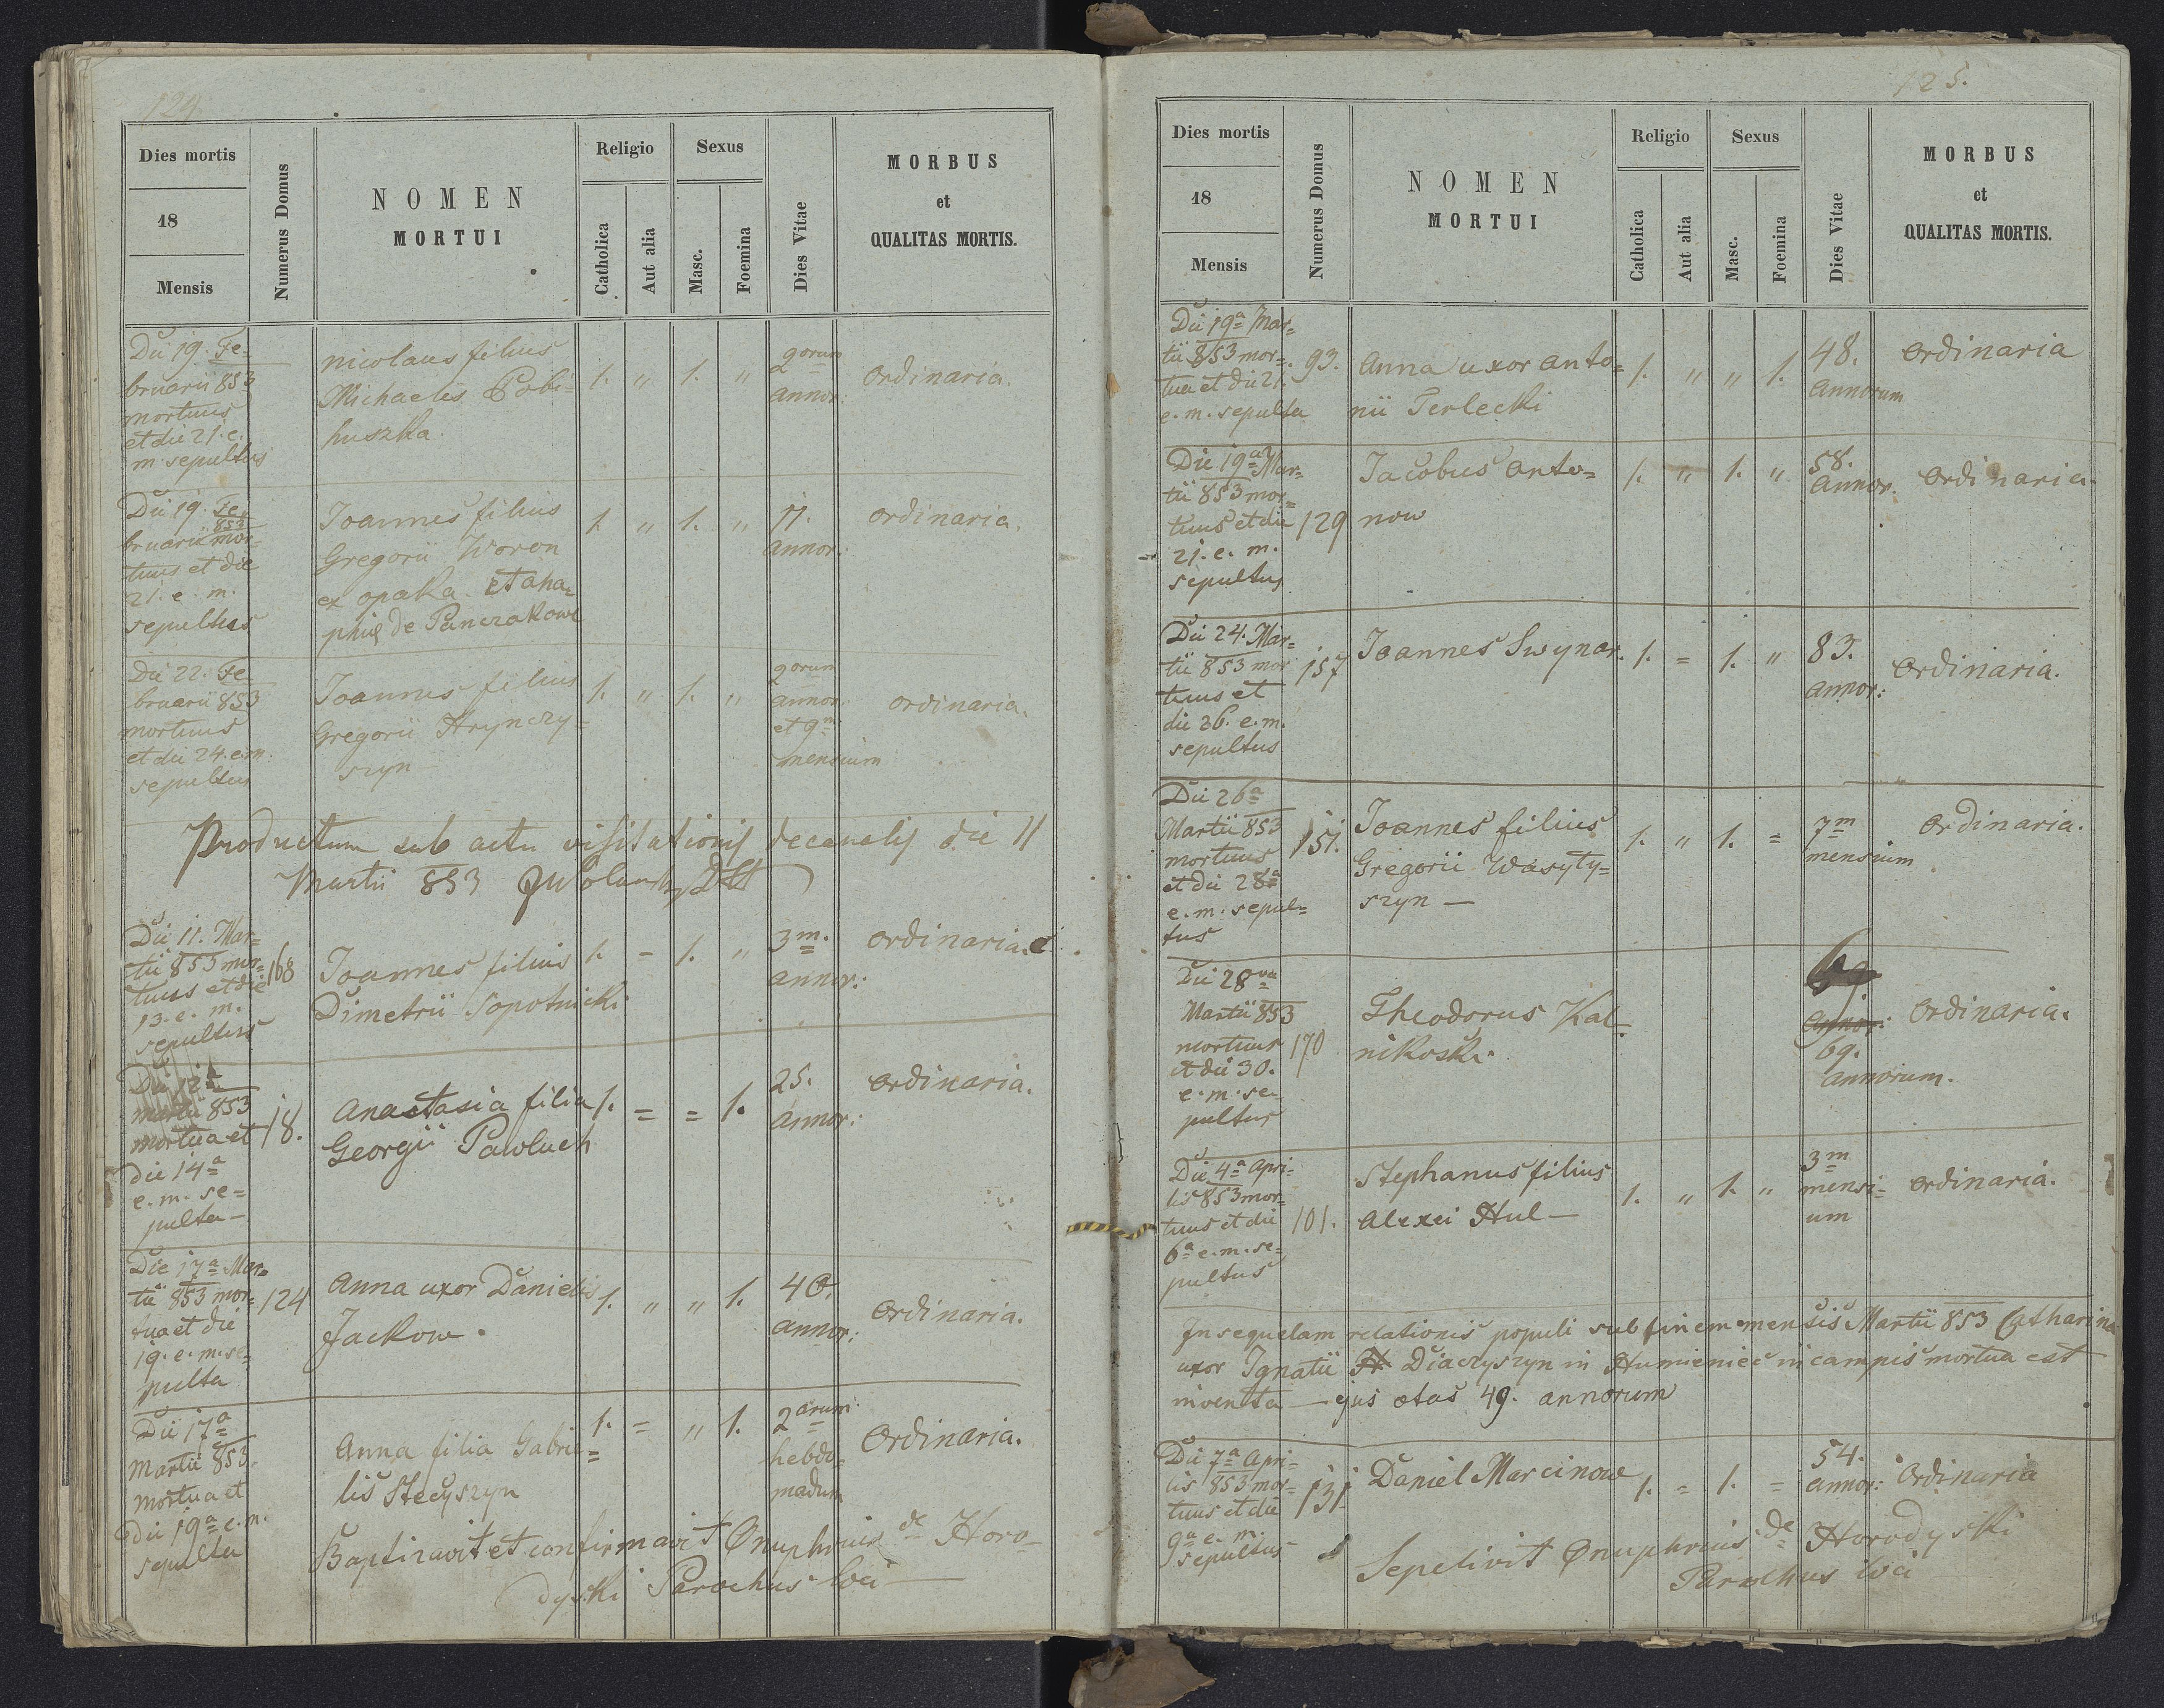 124
Dies mortis
18
Mensis
Numerus Domus
NOMEN
MORTUI
Religio
Catholica
Aut alia
Sexus
Masc.
Foemina
Dies Vitae
MORBUS
et
QUALITAS MORTIS.
Die 19. Fe-
bruarii 853
mortuus
et die 21. e.
m. sepultus
Nicolaus filius
Michaelis
huszka.
1. " 1. "
2orum
annor.
Ordinaria.
Die 19. Fe-
853
bruarii mor-
tuus et die
21. e. m.
sepultus
Joannes filius
Gregorii Woron
ex opaka et aha-
phię de Panczakowe
1. " 1. "
11.
annor.
Ordinaria.
Die 22. Fe-
bruarii 853
mortuus
et die 24. e.m.
sepultus
Joannes filius
Gregorii Hrynczy-
szyn
1. " 1. "
2orum
annor.
et 9m
mensium
ordinaria.
Productum sub actu visitationis decanalis die 11
Martii 853
Die 11. Mar-
tii 853 mor-
tuus et die
13. e. m.
sepultus
168
Joannes filius
Dimetrii Sopotnicki
1. = 1. "
3m.
annor.:
Ordinaria.
Die 12a
Martii 853
mortua et
die 14a
e. m. se-
pulta -
18.
Anastasia filia
Georgii Pawluch
1. = = 1.
25.
annor.:
Ordinaria.
Die 17a Mar-
tii 853 mor-
tua et die
19. e. m. se-
pulta
124
Anna uxor Danielis
Jackow.
1. " " 1.
40.
annor.:
Ordinaria.
Die 17a
Martii 853
mortua et
die 19a e. m.
sepulta
Anna filia Gabrie-
lis Stecyszyn
1. = " 1.
2arum
hebdo-
madum
Ordinaria.
Baptizavit et confirmavit Onuphrius de Horo-
dyski Parochus loci
125.
Dies mortis
18
Mensis
Numerus Domus
NOMEN
MORTUI
Religio
Catholica
Aut alia
Sexus
Masc.
Foemina
Dies Vitae
MORBUS
et
QUALITAS MORTIS.
Die 19a Mar-
tii 853 mor-
tua et die 21.
e. m. sepulta
93.
Anna uxor Anto-
nii Terlecki
1. " " 1.
48.
Annorum
Ordinaria
Die 19a Mar-
tii 853 mor-
tuus et die
21. e. m.
sepultus
129
Jacobus Anto-
now
1. " 1. "
58.
Annor.
Ordinaria.
Die 24. Mar-
tii 853 mor
tuus et
die 26. e. m.
sepultus
157
Joannes Swynar.
1. = 1. "
83.
annor:
Ordinaria.
Die 26a
Martii 853
mortuus
et die 28a
e. m. sepul-
tus
151.
Joannes filius
Gregorii Wasyty-
szyn -
1. " 1. =
7m
mensium
Ordinaria.
Die 28va
Martii 853
mortuus
et die 30.
e. m. se-
pultus
170
Theodorus Kal-
nikoski.
annor:
69.
annorum.
Ordinaria.
Die 4a Apri-
lis 853 mor-
tuus et die
6a e. m. se-
pultus
101.
Stephanus filius
Alexei Hul -
1. " 1. "
3m
mensi-
um
Ordinaria.
In sequelam relationis populi sub finem mensis Martii 853 Catharina
uxor Ignatii Diaczyszyn in Humieniec in campis mortua est
inventa - ejus aetas 49. annorum
Die 7a Apri-
lis 853 mor-
tuus et die
9a e. m.
sepultus
131.
Daniel Marcinow
1. = 1. =
54.
annor:
Ordinaria
Sepelivit Onuphrius de Horodyski
Parochus loci